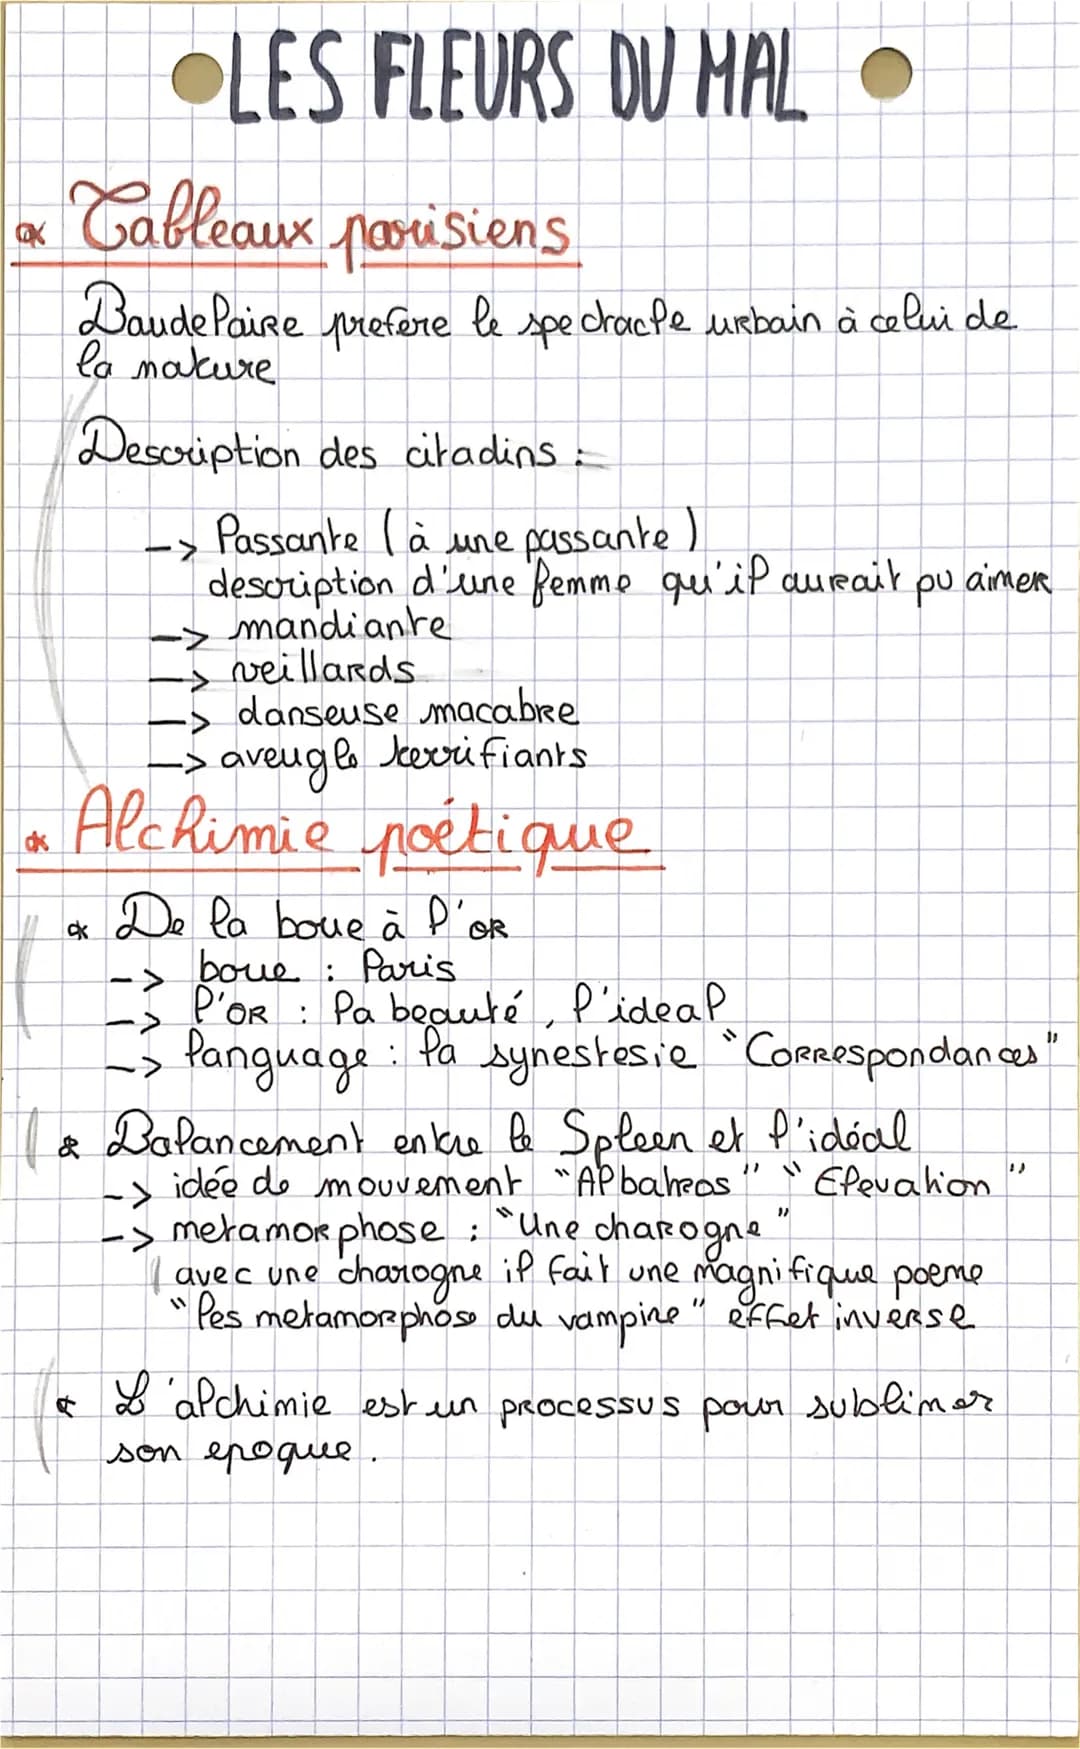 LES FLEURS DU MAL
Tableaux parisiens
Baudelaire prefere le spectracle urbain à celui de
la nature
Description des citadins :
-> Passante (à une passante)
description d'une femme qu'il aurait pu aimer
-> mandiante
-> veillards
-> danseuse macabre
-> aveugle terrifiants
Alchimie poétique
* De la boue à l'or
-> boue : Paris
-> l'or : la beauté, l'ideal
-> language : la synestesie "Correspondances"
* Balancement entre le Spleen et l'idéal
-> idée de mouvement "Albatros" "Elevation"
-> metamorphose : "Une charogne"
avec une charogne il fait une magnifique poeme
"les metamorphose du vampire" effet inverse
* L'alchimie est un processus pour sublimer
son epoque.